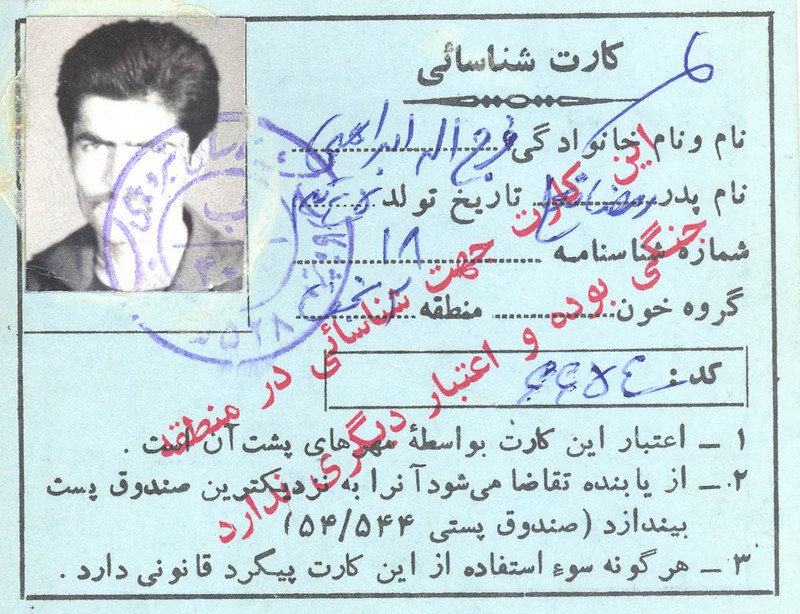 کارت شناسائی
نام و نام خانوادگی فرج اله ابراهیمی
نام پدر رمضانعلی تاریخ تولد
شماره شناسنامه ۱۸
گروه خون منطقه
کد:
۱ ــ اعتبار این کارت بواسطهٔ مهرهای پشت آن است .
۲ ــ از یابنده تقاضا می‌شود آنرا به نزدیکترین صندوق پست
بیندازد (صندوق پستی ۵۴/۵۴۴)
۳ ــ هرگونه سوء استفاده از این کارت پیگرد قانونی دارد .
این کارت جهت شناسائی در منطقه
جنگی بوده و اعتبار دیگری ندارد